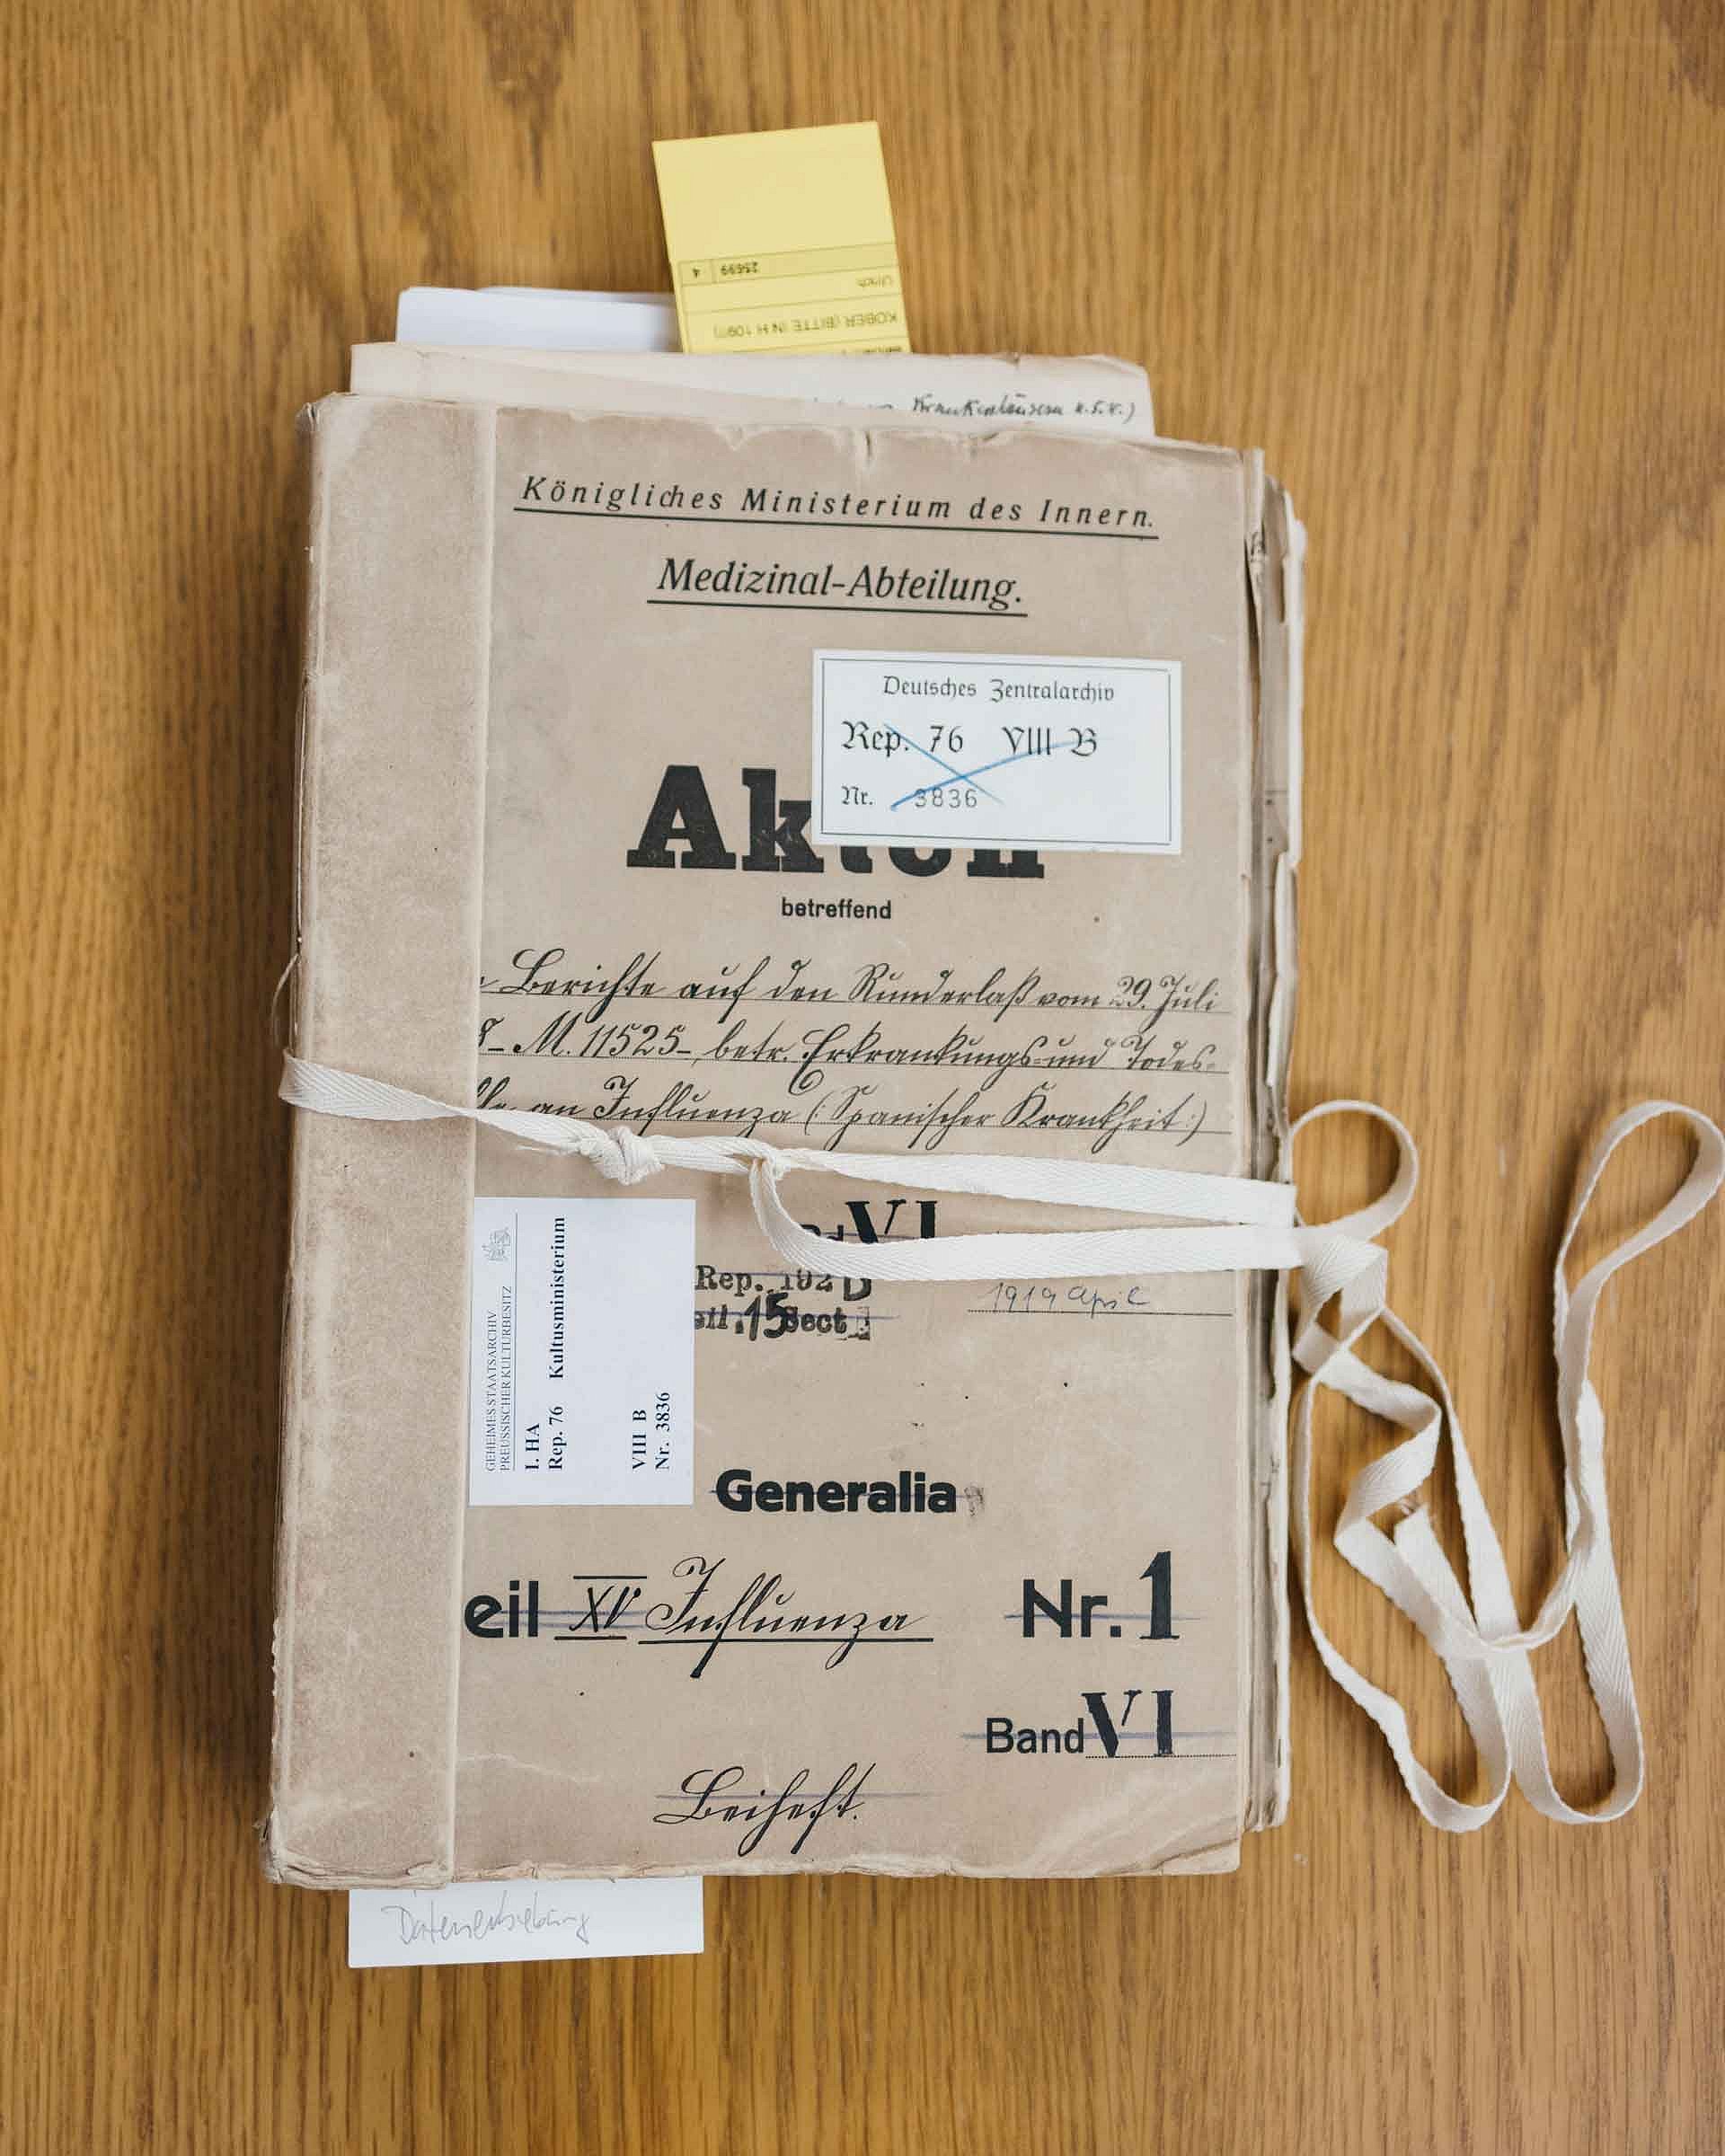 25699 4
Ulrich
KOBER (BITTE IN H 109!!)
Krankenhäusern u.s.w.)
Königliches Ministerium des Innern.
Medizinal-Abteilung.
Deutsches Zentralarchiv
Rep. 76 VIII B
Nr. 3836
Akten
betreffend
Berichte auf den Runderlaß vom 29. Juli
8 - M. 11525 -, betr. Erkrankungs- und Todes-
an Influenza (Spanischer Krankheit:)
VI
Rep. 192 D
15 Sect
1919 April
GEHEIMES STAATSARCHIV
PREUSSISCHER KULTURBESITZ
I. HA
Rep. 76 Kultusministerium
VIII B
Nr. 3836
Generalia
eil XV Influenza Nr. 1
Band VI
Beiheft.
Datenerhebung